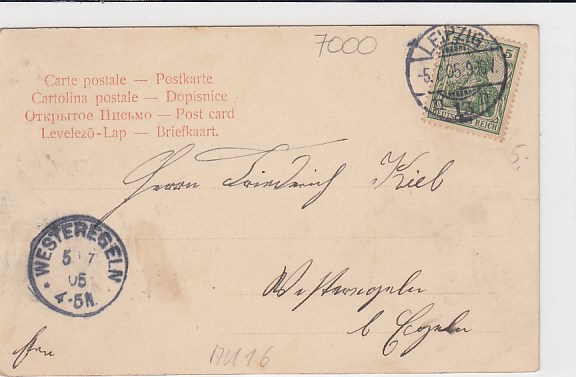 7000
LEIPZIG
5
-5. 05.9
13
DEUTSCHES REICH
Carte postale — Postkarte
Cartolina postale — Dopisnice
Открытое Письмо — Post card
Levelező-Lap — Briefkaart.
5.-
Herrn Friedrich Kiel
WESTEREGELN
5 7
05
4-5N.
Westeregeln
b Egeln